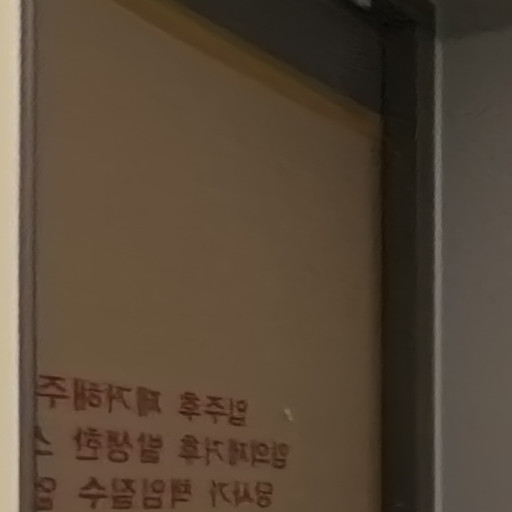 입주후 제거해주
임의제거후 발생한
당사가 책임질수